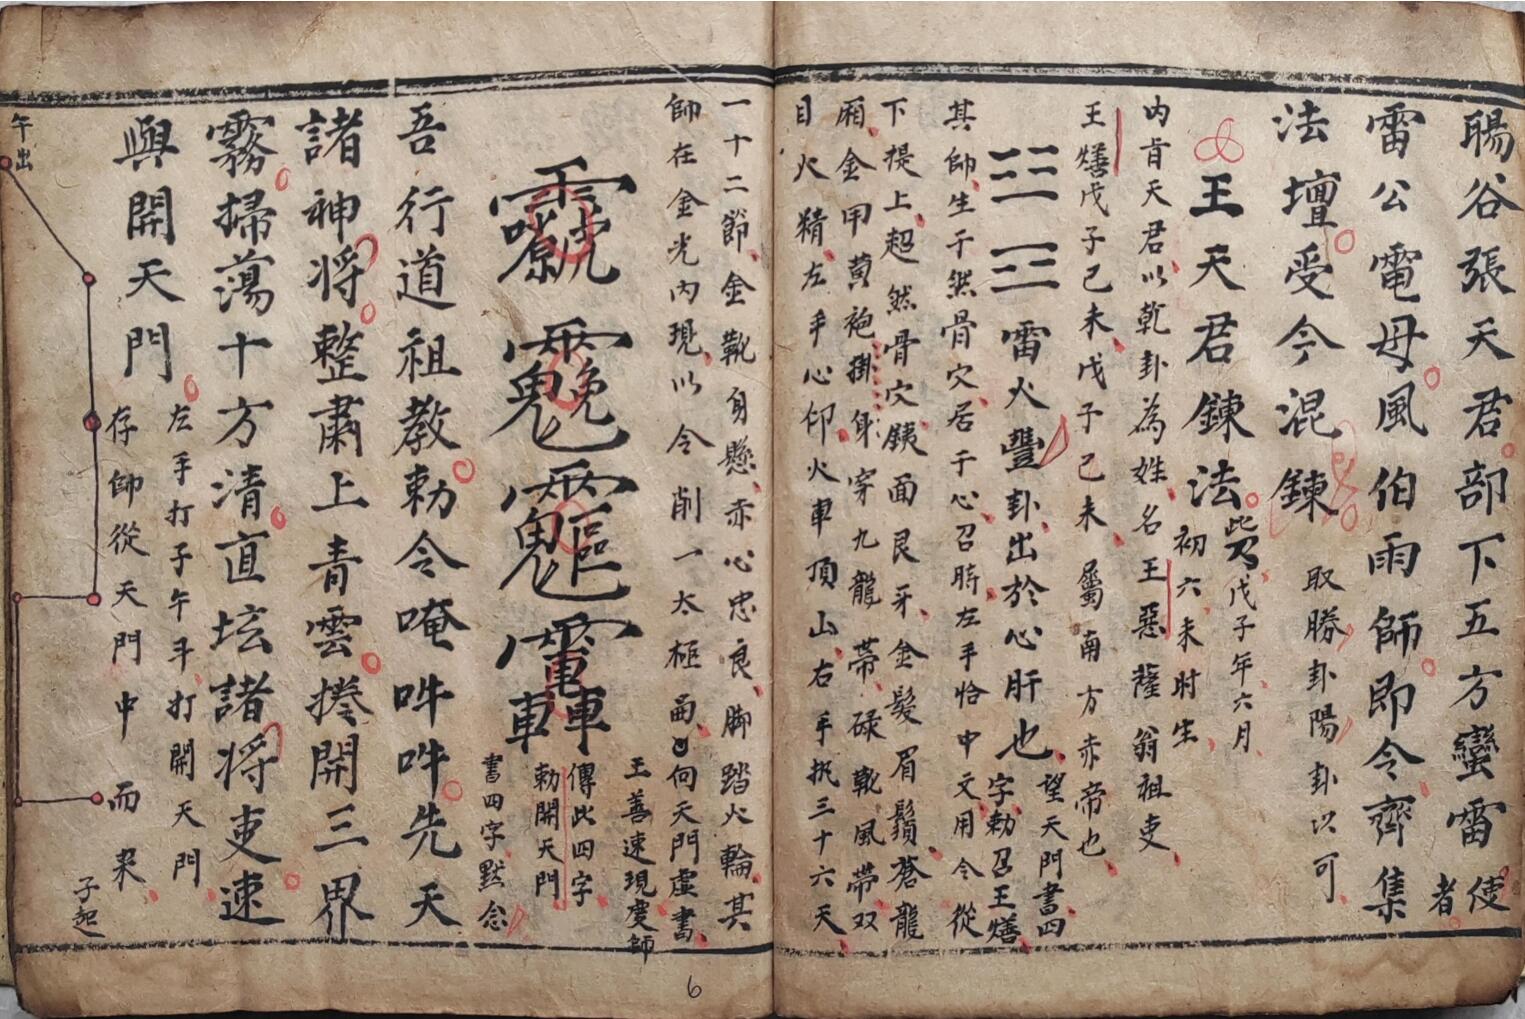 暘谷張天君部下五方蠻雷使者
雷公電母風伯雨師即令齊集
法壇受今混鍊
取勝卦陽卦以可
王天君鍊法
戊子年六月
初六未时生
内肯天君以乾卦為姓名王惡薩翁祖吏
王燌戊子己未戊子己未屬南方赤帝也
雷火豐卦出於心肝也
望天門書四
字勅召王燌
其帥生于然骨穴居于心召時左手恰中文用令從
下提上超然骨穴銕面艮牙金髮眉鬚蒼龍
厢金甲黄袍掛身穿九龍帶碌靴風帶双
目火精左手心印火車頂山右手执三十六天
一十二節金靴身懸赤心忠良脚踏火輪其
帥在金光内現以令削一太極向天門虛書
王善速現虔師
傳此四字
勅開天門
書四字默念
吾行道祖教勅令唵吽吽先天
諸神將整肅上青雲捲開三界
霧掃蕩十方清直坛諸將吏速
與開天門
左手打子午斗打開天門
存帥從天門中而来
子起
午出
6